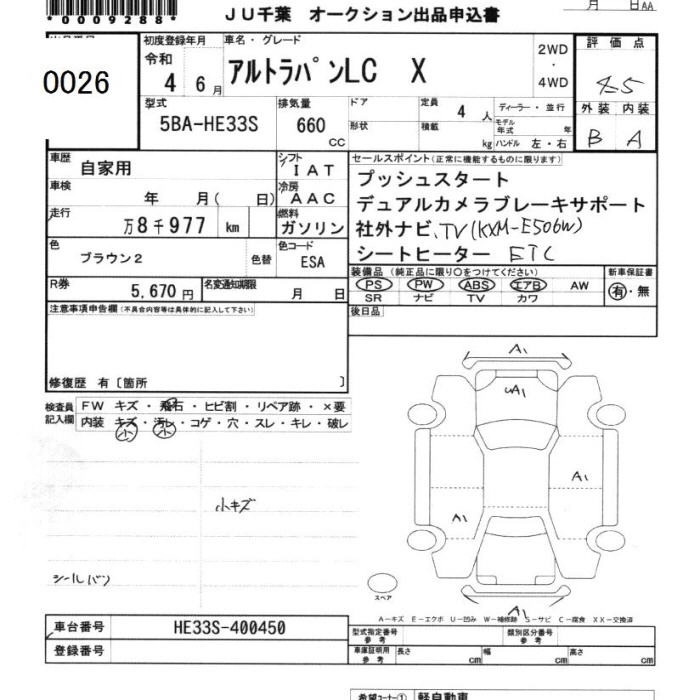 *0009288*
JU千葉 オークション出品申込書
月 日AA
0026
初度登録年月
令和
4 6月
車名・グレード
アルトラパンLC X
2WD
・
4WD
評価点
4.5
外装 内装
B A
型式
5BA-HE33S
排気量
660
CC
ドア
形状
定員 4 人
積載 kg
ディーラー・並行
モデル年式 年
ハンドル 左・右
車歴
自家用
シフト
IAT
車検
年 月( 日)
冷房
AAC
走行
万8千977 km
燃料
ガソリン
色
ブラウン2
色替
色コード
ESA
R券
5,670円
名変通知期限
月 日
セールスポイント(正常に機能するものに限ります)
プッシュスタート
デュアルカメラブレーキサポート
社外ナビ、TV(KXM-E506W)
シートヒーター ETC
装備品(純正品に限り○をつけてください)
PS PW ABS エアB AW
SR ナビ TV カワ
新車保証書
有・無
後日品
注意事項申告欄(不具合内容等は具体的に記入して下さい)
修復歴 有〔箇所 〕
検査員
記入欄
FW キズ・飛石・ヒビ割・リペア跡・×要
内装 キズ・汚レ・コゲ・穴・スレ・キレ・破レ
小 小
A1
UA1
A1
A1
A1
小キズ
シールバン
スペア
A-キズ E-エクボ U-凹み W-補修跡 S-サビ C-腐食 XX-交換済
車台番号
HE33S-400450
登録番号
型式指定番号
参考
類別区分番号
参考
車庫証明用
参考
長さ cm 幅 cm 高さ cm
希望コーナー① 軽自動車